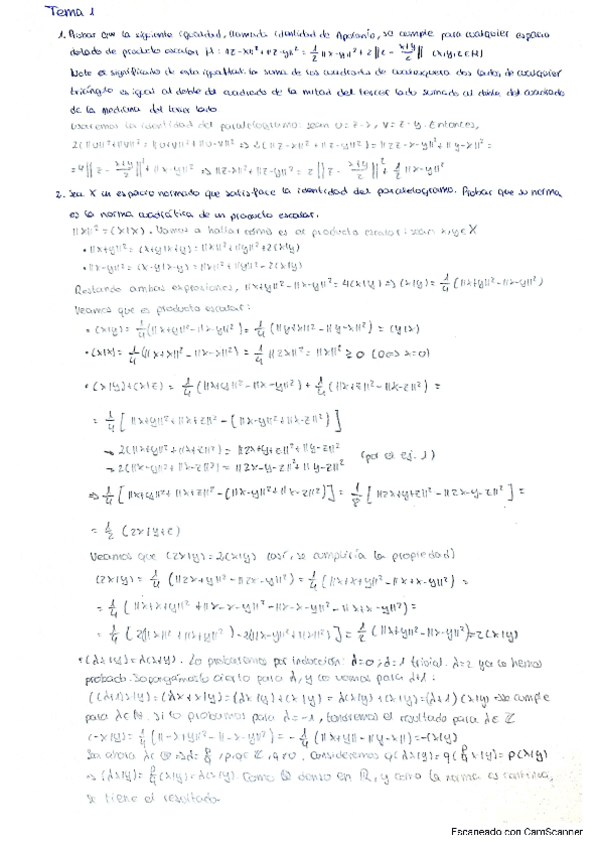 Tema 1
1. Probar que la siguiente igualdad, llamada identidad de Apolonio, se cumple para cualquier espacio
dotado de producto escalar H: ||z-x||²+||z-y||² = 1/2||x-y||²+2||z - (x+y)/2||² (x,y,z∈H)
Note el significado de esta igualdad: la suma de los cuadrados de cualesquiera dos lados de cualquier
triángulo es igual al doble del cuadrado de la mitad del tercer lado sumado al doble del cuadrado
de la mediana del tercer lado
Usaremos la identidad del paralelogramo: sean u=z-x, v=z-y. Entonces,
2(||u||²+||v||²) = ||u+v||²+||u-v||² => 2(||z-x||²+||z-y||²) = ||2z-x-y||²+||y-x||² =
=4||z - (x+y)/2||²+||x-y||² => ||z-x||²+||z-y||² = 2||z - (x+y)/2||²+1/2||x-y||²
2. Sea X un espacio normado que satisface la identidad del paralelogramo. Probar que su norma
es la norma cuadrática de un producto escalar.
||x||²=(x|x). Vamos a hallar cómo es el producto escalar: sean x,y∈X
• ||x+y||² = (x+y|x+y) = ||x||²+||y||²+2(x|y)
• ||x-y||² = (x-y|x-y) = ||x||²+||y||²-2(x|y)
Restando ambas expresiones, ||x+y||²-||x-y||² = 4(x|y) => (x|y) = 1/4(||x+y||²-||x-y||²)
Veamos que es producto escalar:
• (x|y) = 1/4(||x+y||²-||x-y||²) = 1/4(||y+x||²-||y-x||²) = (y|x)
• (x|x) = 1/4(||x+x||²-||x-x||²) = 1/4||2x||² = ||x||² ≥ 0 (0 x=0)
• (x|y)+(x|z) = 1/4(||x+y||²-||x-y||²)+1/4(||x+z||²-||x-z||²) =
= 1/4[||x+y||²+||x+z||²-(||x-y||²+||x-z||²)]
→ 2(||x+y||²+||x+z||²) = ||2x+y+z||²+||y-z||²
→ 2(||x-y||²+||x-z||²) = ||2x-y-z||²+||y-z||² (por el ej. 1)
=> 1/4[||x+y||²+||x+z||²-(||x-y||²+||x-z||²)] = 1/8[||2x+y+z||²-||2x-y-z||²] =
= 1/2(2x|y+z)
Veamos que (2x|y)=2(x|y) (así, se cumpliría la propiedad)
(2x|y) = 1/4(||2x+y||²-||2x-y||²) = 1/4(||x+x+y||²-||x+x-y||²) =
= 1/4(||x+x+y||²+||x-x-y||²-||x-x-y||²-||x+x-y||²) =
= 1/4[2(||x||²+||x+y||²)-2(||x-y||²+||x||²)] = 1/2(||x+y||²-||x-y||²)=2(x|y)
• (λx|y)=λ(x|y). Lo probaremos por inducción: λ=0, λ=1 trivial. λ=2 ya lo hemos
probado. Supongámoslo cierto para λ, y lo vemos para λ+1:
((λ+1)x|y)=(λx+x|y)=(λx|y)+(x|y) = λ(x|y)+(x|y)=(λ+1)(x|y) → Se cumple
para λ∈ℕ. Si lo probamos para λ=-1, tendremos el resultado para λ∈ℤ
(-x|y) = 1/4(||-x+y||²-||-x-y||²) = -1/4(||x+y||²-||y-x||²)=-(x|y)
Sea ahora λ∈ℚ => λ=p/q, p,q∈ℤ, q≠0. Consideremos q(λx|y) = q(p/q x|y)= p(x|y)
=> (λx|y) = p/q(x|y) = λ(x|y). Como ℚ denso en ℝ, y como la norma es continua,
se tiene el resultado
Escaneado con CamScanner